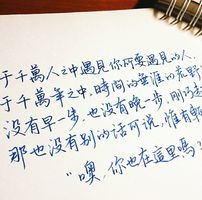 于千萬人之中遇見你所要遇見的人,
于千萬年之中,時間的無涯的荒野
没有早一步,也没有晚一步,剛巧赶
那也没有别的话可说,惟有輕
“噢,你也在這里嗎?